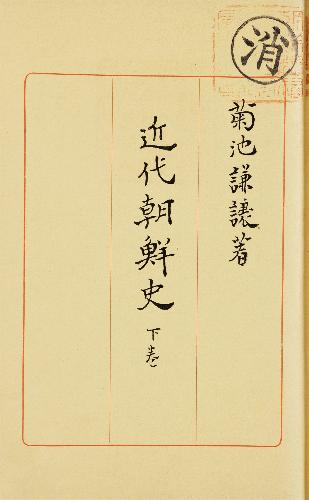 消
菊池謙譲著
近代朝鮮史
下巻